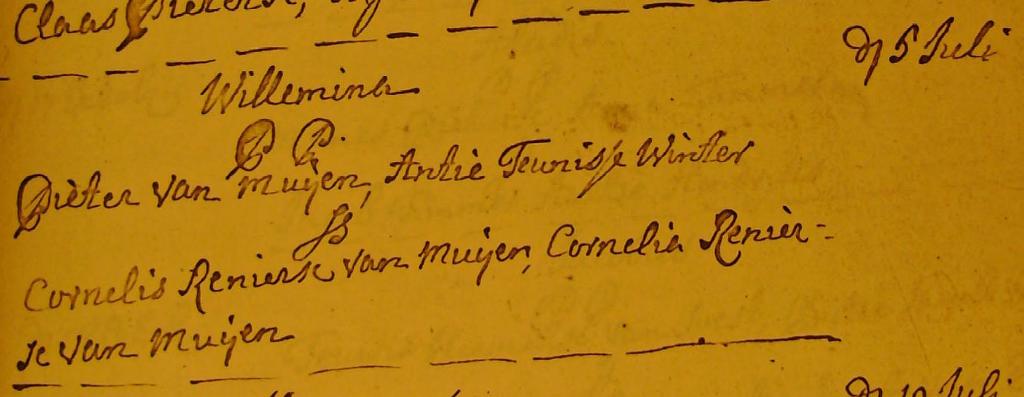 Claas Pieterse,
dn 5 Juli
Willemina
P P.
Pieter van Muijen, Antie Teunisse Winter
SS
Cornelis Renierse van Muijen, Cornelia Renier-
se van Muijen
dn 10 Juli